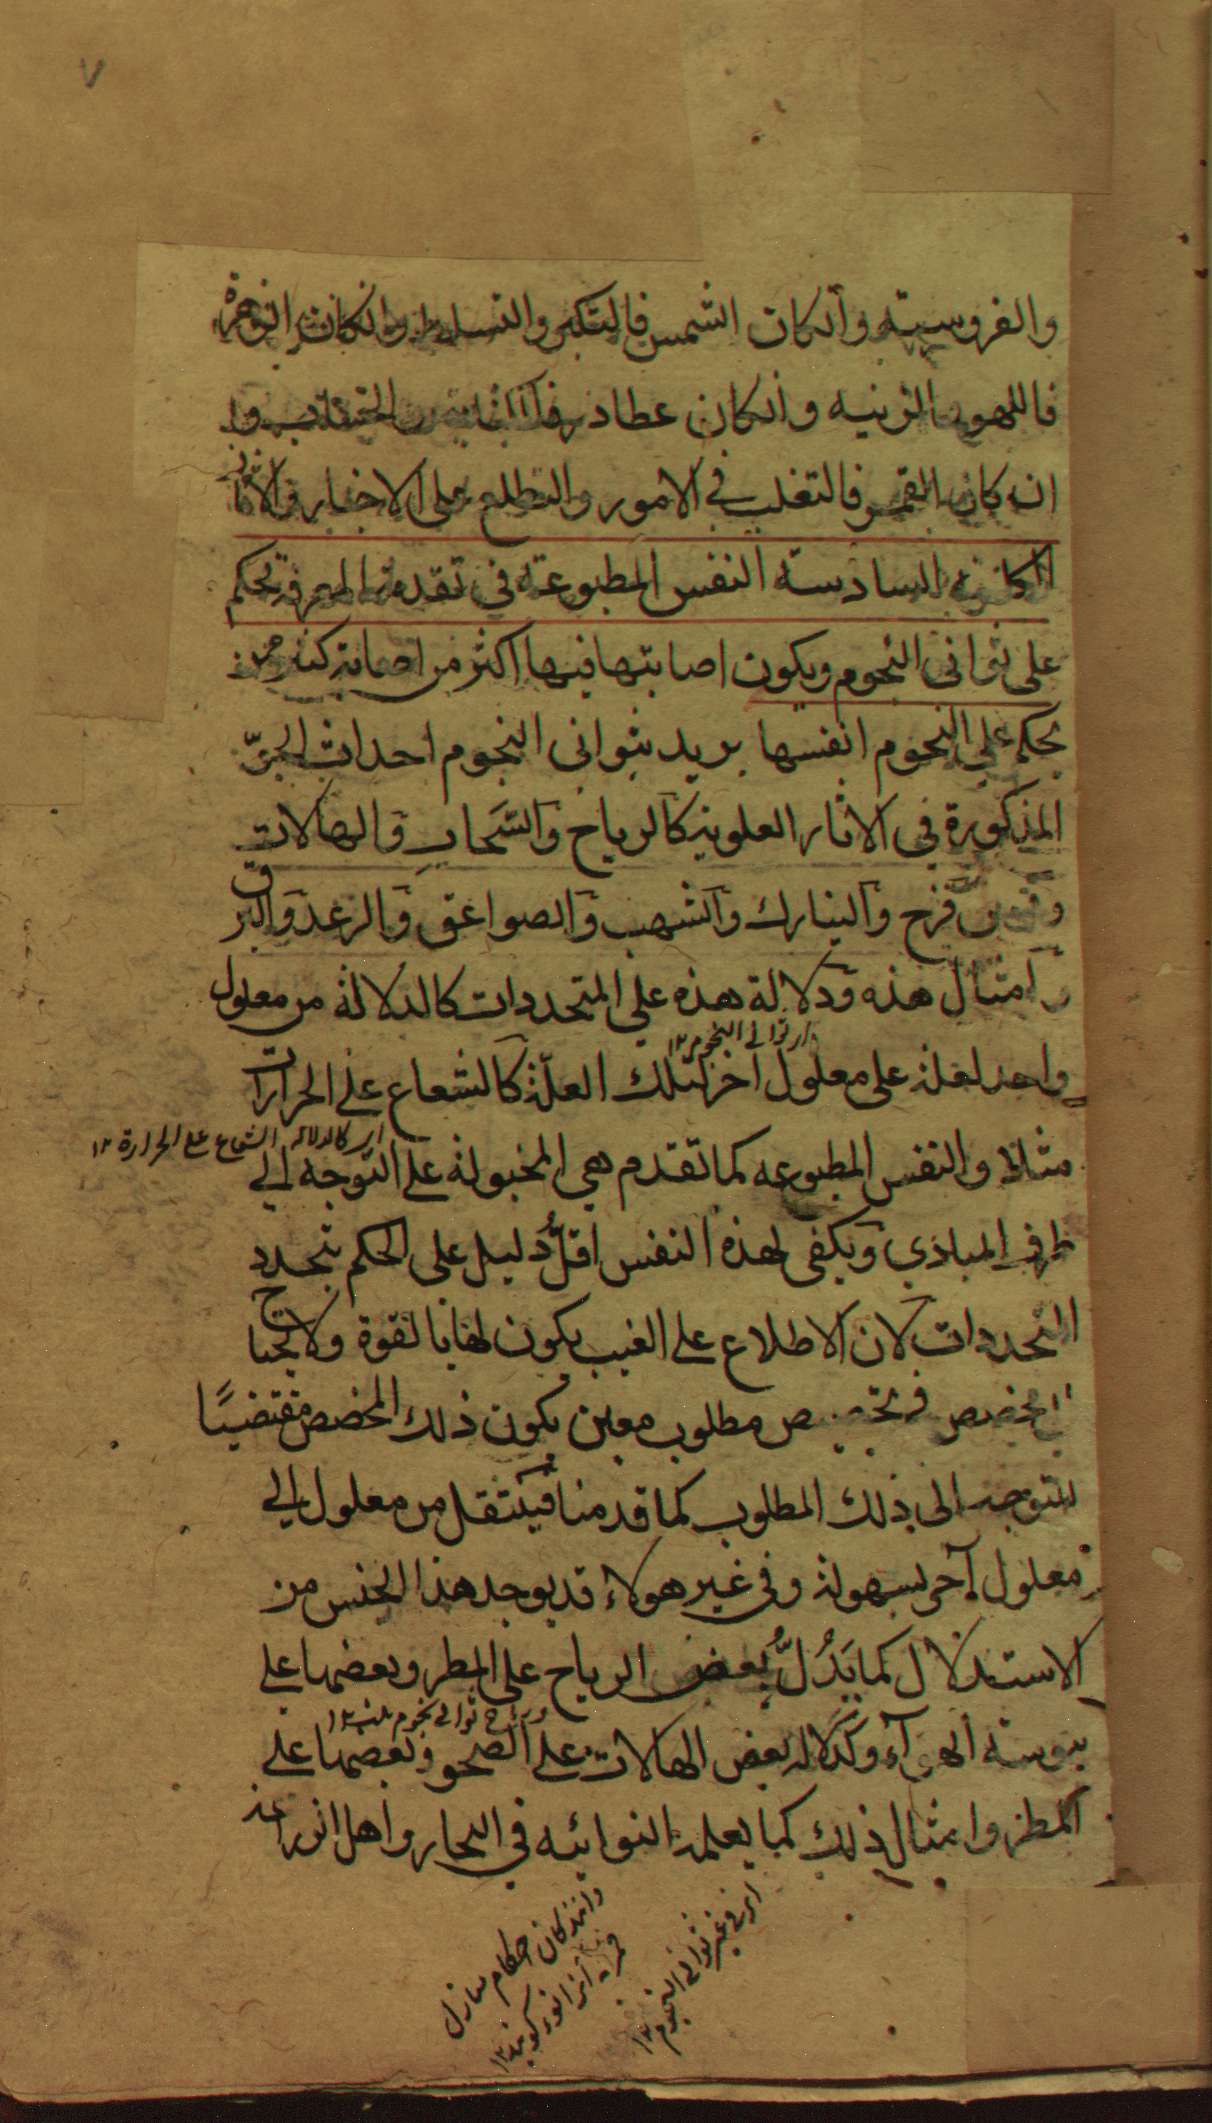 ٧
والفروسية وانكان الشمس فالتكبر والتسلط وانكان الزهرة
فاللهو والزينه وانكان عطارد
ان كان القمر فالتغلب في الامور والتطلع على الاخبار والاثار
الكلمة السادسة النفس المطبوعة في تقدمة المعرفة تحكم
على ثواني النجوم ويكون اصابتها فيها اكثر من اصابة كثير من
يحكم على النجوم انفسها يريد بثواني النجوم احداث الجوّ
المذكورة في الاثار العلوية كالرياح والسَحاب والهالات
وقوس قزح والنيازك والشهب والصواعق والرعد والبرق
وامثال هذه ودلالة هذه على المتجددات كالدلالة من معلول
اى ثوانى النجوم ١٢
واحد لعلة على معلول اخر لتلك العلّة كالشعاع على الحرارات
اى كالدلالة الشعاع على الحرارة ١٢
مثلا والنفس المطبوعه كما تقدم هي المجبولة على التوجه الي
طرف المبادي ويكفى لهذه النفس اقلُّ دليل على الحكم بتجدد
المتجددات لان الاطلاع على الغيب يكون لها بالقوة ولا يحتاج
لمخصص مطلوب معين يكون ذلك المخصص مقتضيًا
للتوجه الى ذلك المطلوب كما قدمنا فينتقل من معلول الي
معلول آخر بسهولة وفي غير هولاء قد يوجد هذا الجنس من
الاستدلال كما يَدُلّ بعض الرياح على المطر وبعضها على
يبوسة الهوآء وكدلالة بعض الهالات على الصحو وبعضها على
المطر وامثال ذلك كما يعلمه النواتيه في البحار واهل الزراعة
اى في غير ثواني النجوم ١٢